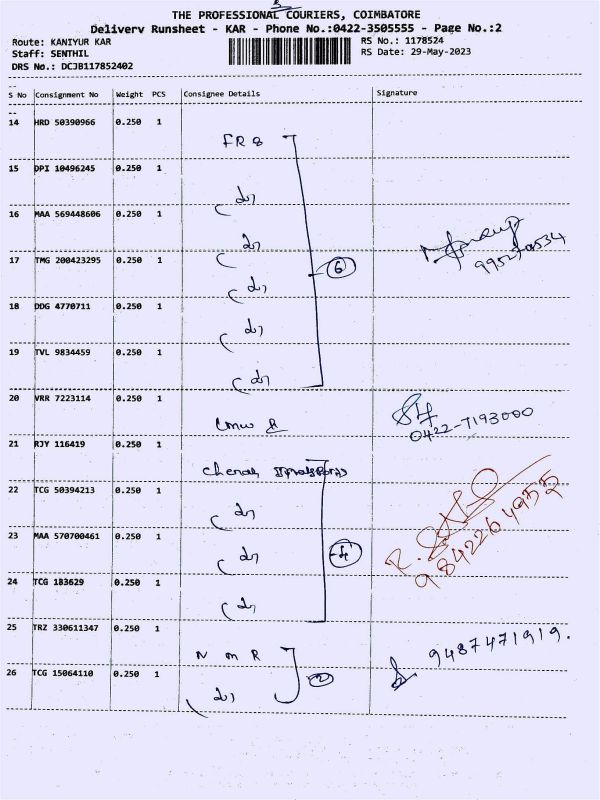 THE PROFESSIONAL COURIERS, COIMBATORE
Delivery Runsheet - KAR - Phone No.:0422-3505555 - Page No.:2
Route: KANIYUR KAR RS No.: 1178524
Staff: SENTHIL RS Date: 29-May-2023
DRS No.: DCJB117852402
S No Consignment No Weight PCS Consignee Details Signature
14 HRD 50390966 0.250 1
FR 8
15 DPI 10496245 0.250 1
16 MAA 569448606 0.250 1
17 TMG 200423295 0.250 1
6
18 DDG 4770711 0.250 1
19 TVL 9834459 0.250 1
20 VRR 7223114 0.250 1
0422-7193000
21 RJY 116419 0.250 1
22 TCG 50394213 0.250 1
23 MAA 570700461 0.250 1
4
9842264955
24 TCG 183629 0.250 1
25 TRZ 330611347 0.250 1
N m R
9487471919.
26 TCG 15064110 0.250 1
2